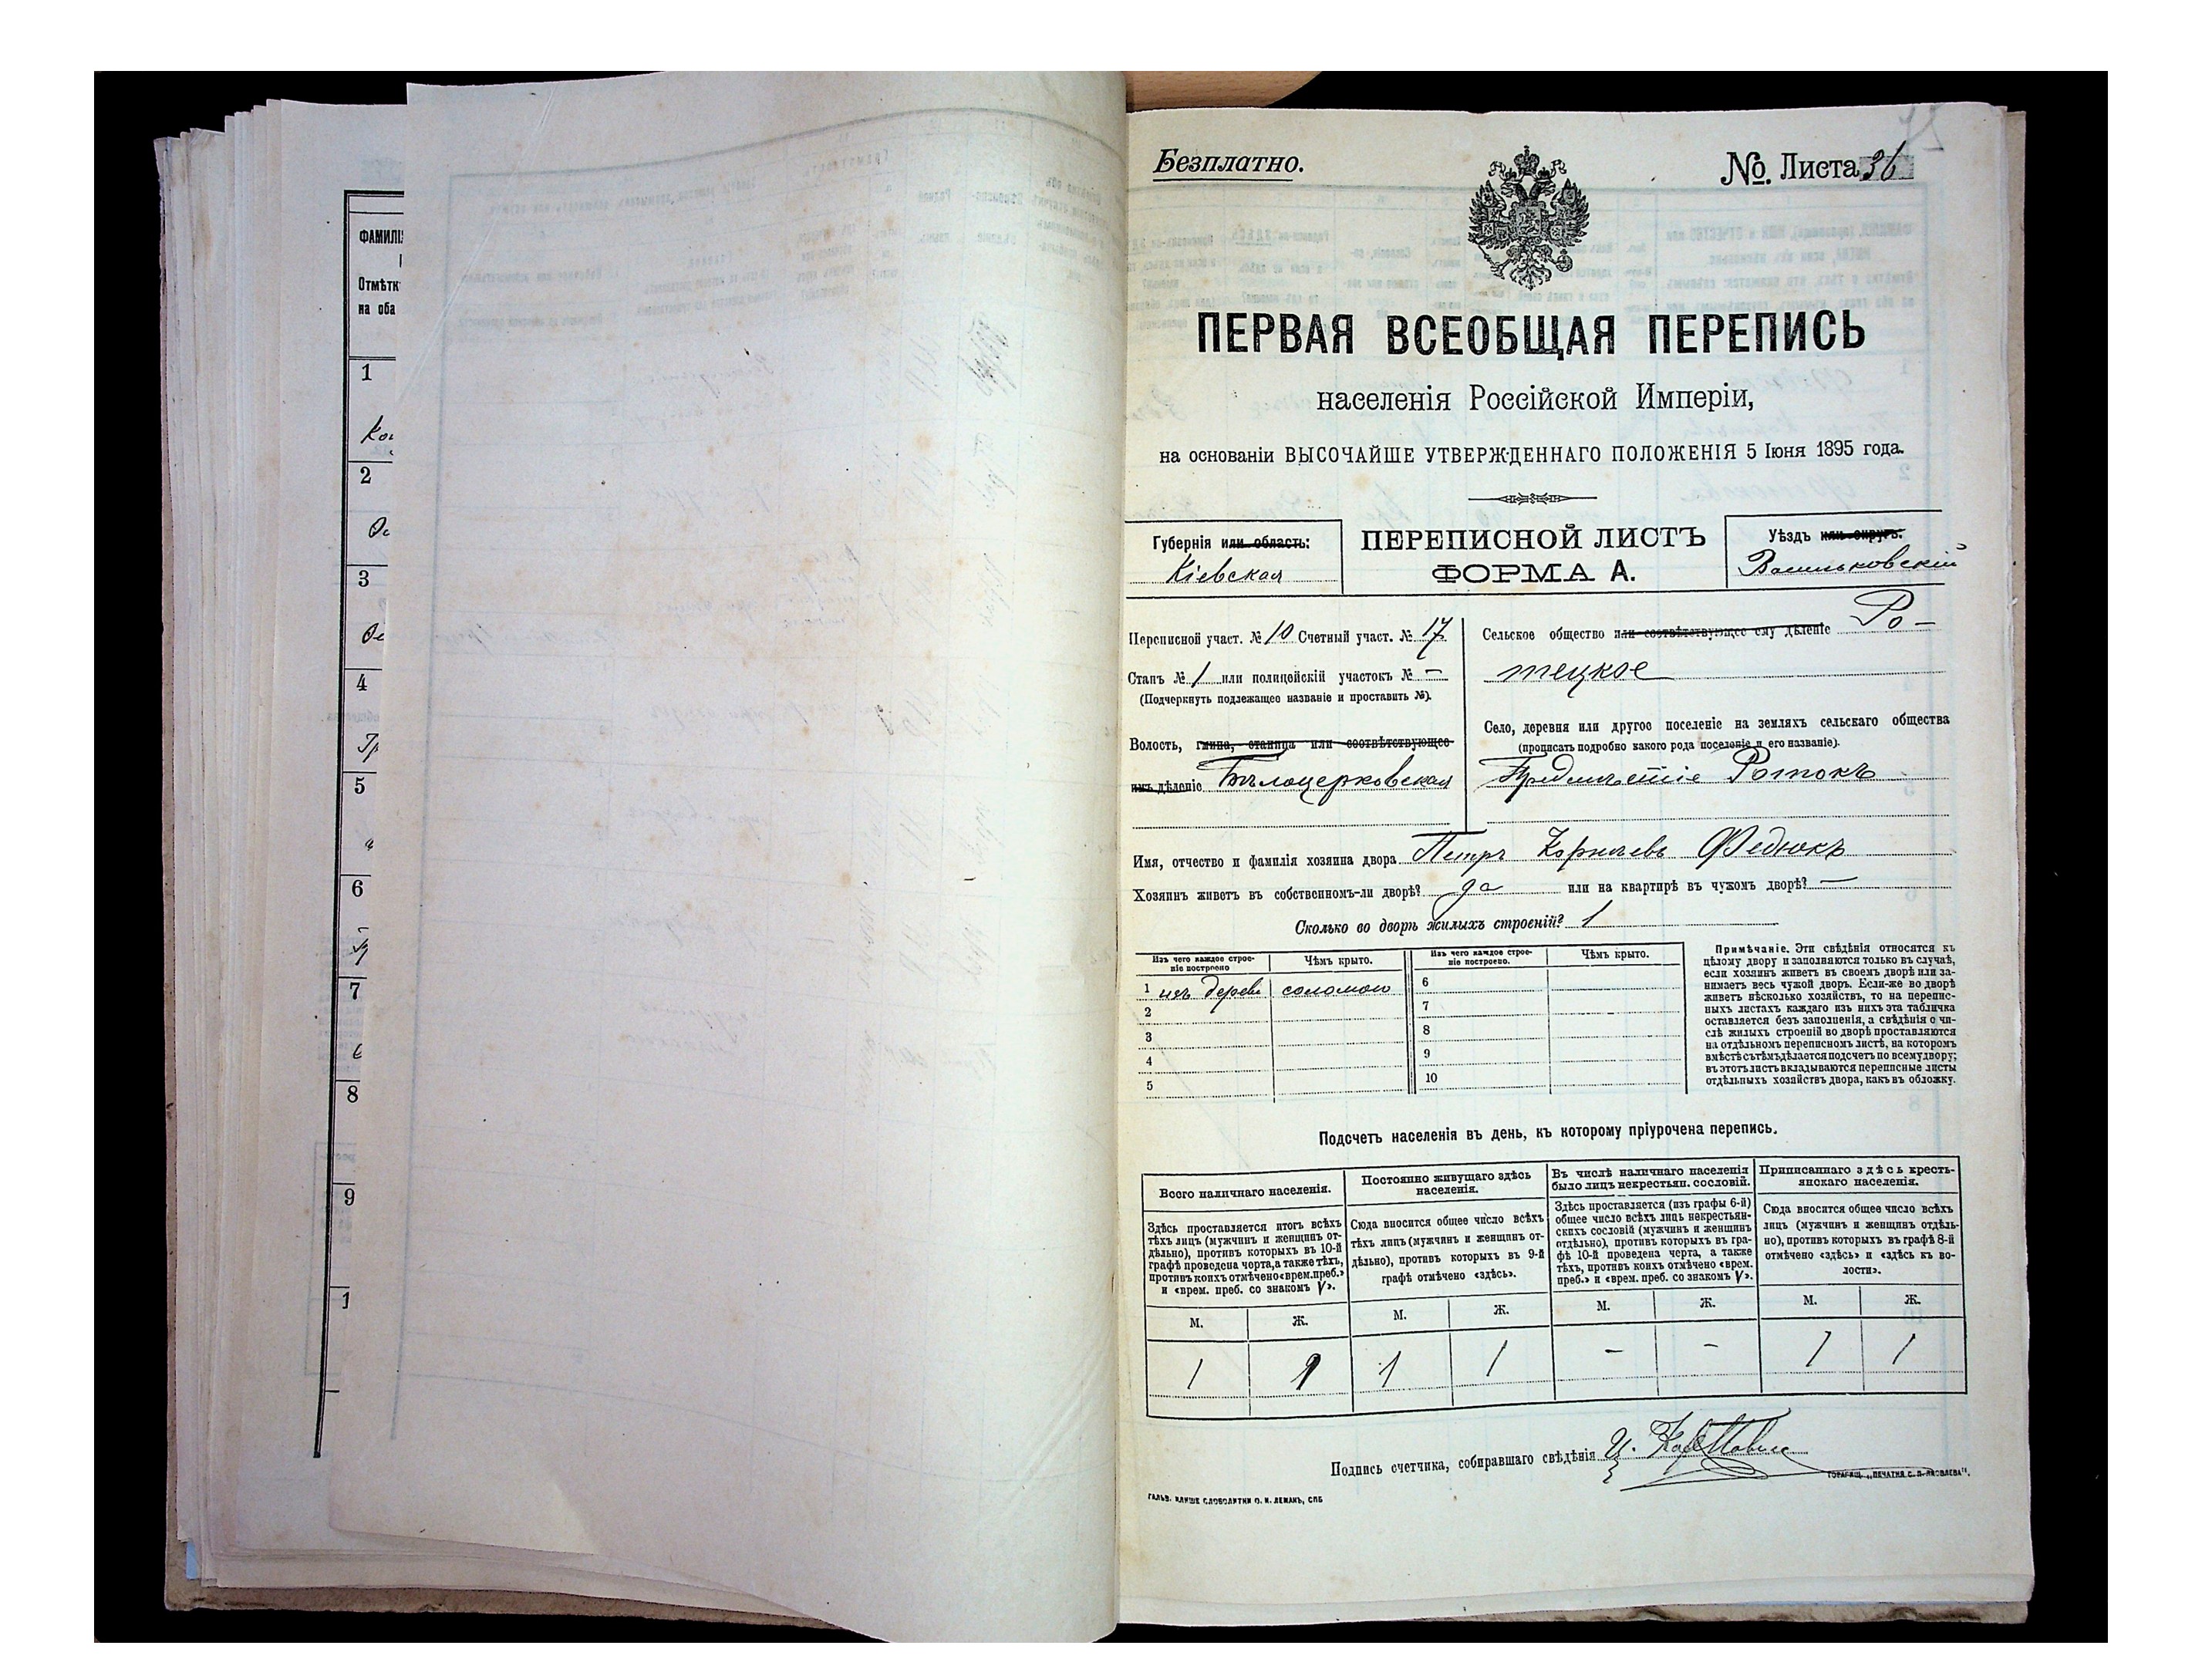 ФАМИЛІ
Отмѣтк
на оба
1
2
3
4
5
6
7
8
9
1
Безплатно.
№ Листа 36
ПЕРВАЯ ВСЕОБЩАЯ ПЕРЕПИСЬ
населенія Россійской Имперіи,
на основаніи ВЫСОЧАЙШЕ УТВЕРЖДЕННАГО ПОЛОЖЕНІЯ 5 Іюня 1895 года.
Губернія или область:
Кіевская
ПЕРЕПИСНОЙ ЛИСТЪ
ФОРМА А.
Уѣздъ или округъ:
Васильковскій
Переписной участ. № 10 Счетный участ. № 17
Станъ № 1 или полицейскій участокъ № —
(Подчеркнуть подлежащее названіе и проставить №).
Волость, гмина, станица или соотвѣтствующее
имъ дѣленіе Бѣлоцерковская
Сельское общество или соотвѣтствующее ему дѣленіе Ро-
тецкое
Село, деревня или другое поселеніе на земляхъ сельскаго общества
(прописать подробно какого рода поселеніе и его названіе).
Предмѣстіе Ротокъ
Имя, отчество и фамилія хозяина двора Петръ Корнѣевъ Федюкъ
Хозяинъ живетъ въ собственномъ-ли дворѣ? да или на квартирѣ въ чужомъ дворѣ? —
Сколько во дворѣ жилыхъ строеній? 1
Изъ чего каждое строе-
ніе построено
Чѣмъ крыто.
Изъ чего каждое строе-
ніе построено.
Чѣмъ крыто.
1 изъ дерева соломою
2
3
4
5
6
7
8
9
10
Примѣчаніе. Эти свѣдѣнія относятся къ
цѣлому двору и заполняются только въ случаѣ,
если хозяинъ живетъ въ своемъ дворѣ или за-
нимаетъ весь чужой дворъ. Если-же во дворѣ
живетъ нѣсколько хозяйствъ, то на перепис-
ныхъ листахъ каждаго изъ нихъ эта табличка
оставляется безъ заполненія, а свѣдѣнія о чи-
слѣ жилыхъ строеній во дворѣ проставляются
на отдѣльномъ переписномъ листѣ, на которомъ
вмѣстѣ съ тѣмъ дѣлается подсчетъ по всему двору;
въ этотъ листъ вкладываются переписные листы
отдѣльныхъ хозяйствъ двора, какъ въ обложку.
Подсчетъ населенія въ день, къ которому пріурочена перепись.
Всего наличнаго населенія.
Здѣсь проставляется итогъ всѣхъ
тѣхъ лицъ (мужчинъ и женщинъ от-
дѣльно), противъ которыхъ въ 10-й
графѣ проведена черта, а также тѣхъ,
противъ коихъ отмѣчено «врем. преб.»
и «врем. преб. со знакомъ V».
Постоянно живущаго здѣсь
населенія.
Сюда вносится общее число всѣхъ
тѣхъ лицъ (мужчинъ и женщинъ от-
дѣльно), противъ которыхъ въ 9-й
графѣ отмѣчено «здѣсь».
Въ числѣ наличнаго населенія
было лицъ некрестьян. сословій.
Здѣсь проставляется (изъ графы 6-й)
общее число всѣхъ лицъ некрестьян-
скихъ сословій (мужчинъ и женщинъ
отдѣльно), противъ которыхъ въ гра-
фѣ 10-й проведена черта, а также
тѣхъ, противъ коихъ отмѣчено «врем.
преб.» и «врем. преб. со знакомъ V».
Приписаннаго здѣсь кресть-
янскаго населенія.
Сюда вносится общее число всѣхъ
лицъ (мужчинъ и женщинъ отдѣль-
но), противъ которыхъ въ графѣ 8-й
отмѣчено «здѣсь» и «здѣсь къ во-
лости».
М. Ж. М. Ж. М. Ж. М. Ж.
1 1 1 1 - - 1 1
Подпись счетчика, собиравшаго свѣдѣнія
ГАЛЬВ. КЛИШЕ СЛОВОЛИТНИ О. И. ЛЕМАНЪ, СПБ
ТОВАРИЩ. „ПЕЧАТНЯ С. П. ЯКОВЛЕВА".